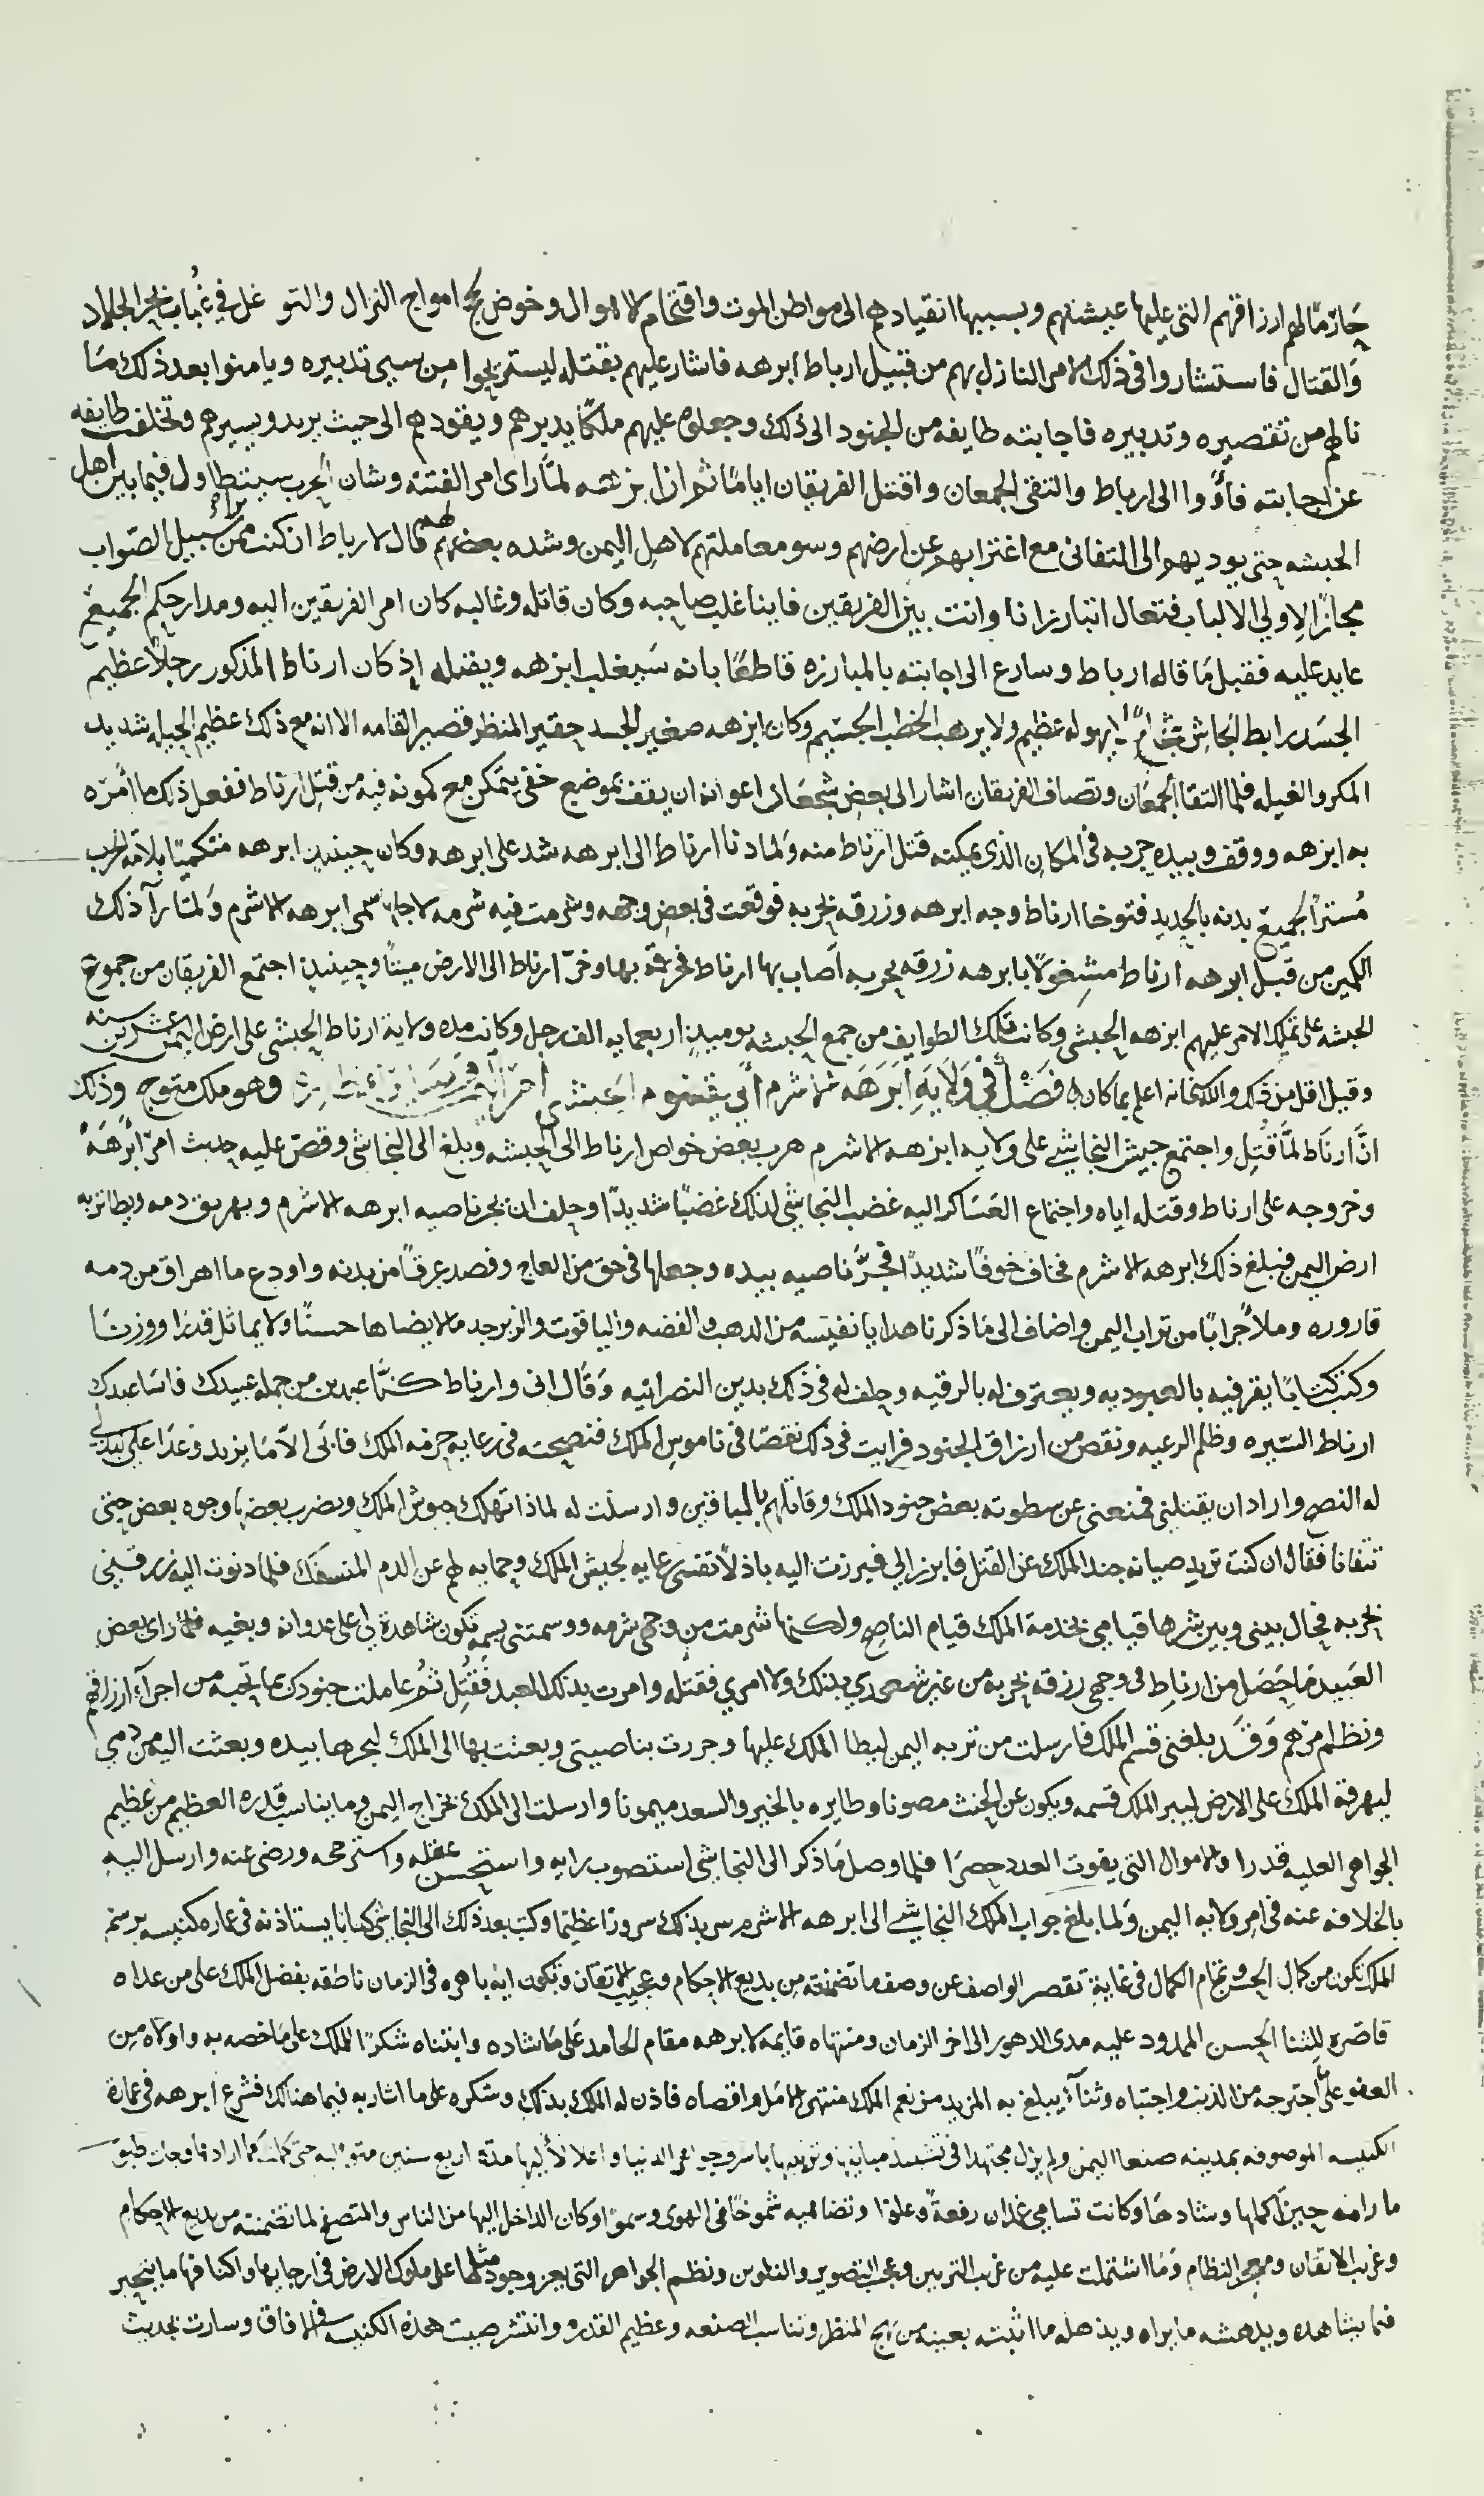 حارمًا لهم ارزاقهم التي عليها عيشتهم وبسببها انقيادهم الى مواطن الموت واقتحام الاهوال وخوض لجج امواج النزال والتوغل في غُباب بحر الجلاد
والقتال فاستشاروا في ذلك الامر النازل بهم من قبيل ارباط ابرهه فاشار عليهم بقتله ليستريحوا من سيئ تدبيره ويامنوا بعد ذلك ما
نالهم من تقصيره وتدبيره فاجابته طايفه من الجنود الى ذلك وجعلوه عليهم ملكًا يدبرهم ويقودهم الى حيث يريد ويسيرهم وتخلفت طايفه
عن اجابته فأووا الى ارباط والتقى الجمعان واقتتل الفريقان ايامًا ثم ان ابرهه لمّا راى امر الفتنه وشان الحرب سيتطاول فيما بين اهل
الحبشه حتى يوديهم الى التفاني مع اغترابهم عن ارضهم وسو معاملتهم لاهل اليمن وشده بعضهم لهم قال لارباط ان كنت ممن يرا سبيل الصواب
مجازًا لاولي الالباب فتعال انتبارز انا وانت بين الفريقين فاينا غلب صاحبه وكان قاتله وغالبه كان امر الفريقين اليه ومدار حكم الجميع
عايد عليه فقبل ما قاله ارباط وسارع الى اجابته بالمبارزه قاطعًا بانه سيغلب ابرهه ويقتله إذ كان ارباط المذكور رجلًا عظيم
الجسد رابط الجاش لا يهوله عظيم ولا يرهب الخطب الجسيم وكان ابرهه صغير الجسد حقير المنظر قصير القامه الا انه مع ذلك عظيم الحيله شديد
المكر والغيله فلما التقا الجمعان وتصاف الفريقان اشار الى بعض شجعان اعوانه ان يقف بموضع خفي يتمكن مع كمونه فيه من قتل ارباط ففعل ذلك ما أمره
به ابرهه ووقف وبيده حربه في المكان الذي يمكنه قتل ارباط منه ولما دنا ارباط الى ابرهه شد على ابرهه وكان حينيذ ابرهه متكميًا بلامة الحرب
مُسترًا لجميع بدنه بالحديد فتوخا ارباط وجه ابرهه وزرقه بحربه فوقعت في بعض وجهه وشرمت فيه شرمه لاجلها سمي ابرهه الاشرم ولمّا رآ ذلك
الكمين من قبل ابرهه ارباط مشغولًا بابرهه زرقه بحربه اصاب بها ارباط فخرقه بها وخرّ ارباط الى الارض ميتًا وحينيذ اجتمع الفريقان من جموع
الحبشه على تمليك الامر عليهم ابرهه الحبشي وكانت تلك الطوايف من جمع الحبشه يوميذٍ اربعمايه الف رجل وكانت مده ولاية ارباط الحبشي على ارض اليمن عشرين سنه
وقيل اقل من ذلك والله سبحانه اعلم بما كان فَصْل في وَلايَةِ أَبرَهَه الاشرم أبي يكسوم الحبشي وهو ملك متوج وذلك
انّ ارباط لمّا قُتِل واجتمع جيش النجاشي على ولايه ابرهه الاشرم هرب بعض خواص ارباط الى الحبشه وبلغ الى النجاشي وقص عليه حديث امر ابرهه
وخروجه على ارباط وقتله اياه واجتماع العساكر اليه غضب النجاشي لذلك غضبًا شديدًا وحلف ان يجز ناصيه ابرهه الاشرم ويهريق دمه ويطا تربه
ارض اليمن فبلغ ذلك ابرهه الاشرم فخاف خوفًا شديدًا فجزّ ناصيه بيده وجعلها في حق من العاج وفصد عرقًا من بدنه واودع ما اهراق من دمه
قاروره وملأ جرابًا من تراب اليمن واضاف الى ما ذكرنا هدايا نفيسه من الذهب والفضه والياقوت والزبرجد ما لا يضاها حسنًا ولا يماثل قدرًا ووزنًا
وكتب كتابًا يقر فيه بالعبوديه ويعترف له بالرقيه وحلف له في ذلك بدين النصرانيه وقال اني وارباط كنّا عبدين من جمله عبيدك فاسا عبدك
ارباط السّيره وظلم الرعيه ونقص من ارزاق الجنود فرايت في ذلك نقصًا في ناموس الملك فنصحته في رعايه حرمه الملك فابى الا ما يريد وغدا على
له النصح واراد ان يقتلني فمنعني عن سطوته بعض جنود الملك وقاتلهم بالباقين وارسلت له لماذا تهلك جيوش الملك ويضرب بعضها وجوه بعض حتى
تتفانا فقال ان كنت تريد صيانه جند الملك عن القتل فابرز الي فبرزت اليه باذلًا نفسي رعايه لجيش الملك وحمايه لهم عن الدم المنسفك فلما دنوت اليه زرقني
بحربه فحال بيني وبين شرها قيامي بخدمة الملك قيام الناصح ولكنها شرمت من وجهي شرمه ووسمتني بسمه تكون شاهدة لي على عدوانه وبغيه فلما راى بعض
العبيد ما حصل من ارباط في وجهي زرقه بحربه من غير شعوري بذلك ولا امري فقتله وامرت بذلك العبد فقُتِل ثم عاملت جنودك بما تحبه من اجرآء ارزاقهم
ونظام امرهم وقد بلغني قسم الملك فارسلت من تربه اليمن ليطا الملك عليها وجززت ناصيتي وبعثت بها الى الملك ليجزها بيده وبعثت اليه من دمي
ليهرقه الملك على الارض ليبر الملك قسمه ويكون عن الحنث مصونا وطايره بالخير والسعد ميمونا وارسلت الى الملك بخراج اليمن وما يناسب قدره العظيم من عظيم
الجواهر العليه قدرا والاموال التي يفوت العدد حصرًا فلما وصل ما ذكر الى النجاشي استصوب رايه واستحسن عقله واسترجحه ورضي عنه وارسل اليه
بالخلافه عنه في امر ولايه اليمن ولما بلغ جواب الملك النجاشي الى ابرهه الاشرم سر بذلك سرورًا عظيمًا وكتب بعد ذلك الى النجاشي كتابا يستاذنه في عماره كنيسه برسم
الملك تكون من كمال الحسن وتمام الكمال في غايةٍ تقصر الواصف عن وصف ما تضمنته من بديع الاحكام وعجيب الاتقان وتكون ايه باهره في الزمان ناطقه بفضل الملك على من عداه
قاصره للثنا الحسن الممدود عليه مدى الدهور الى اخر الزمان ومنتهاه قايمه لابرهه مقام الحامد على ما شاده وابتناه شكرًا للملك على ما خصه به واولاه من
العفو على ما اجترحه من الذنب واجتباه وثنآءً يبلغ به المزيد من نعم الملك منتهى الامل واقصاه فاذن له الملك بذلك وشكره على ما اشار به فيما هنالك فشرع ابرهه في عمارة
الكنيسه الموصوفه بمدينه صنعا اليمن ولم يزل مجتهدا في تشييد مبانيها وتزيينها باسر جواهر الدنيا مدة اربع سنين متواليه حتى كملت كما ارادها وجات طبق
ما رامه حين اكملها وشادها وكانت تسامي غمدان رفعةً وعلوًا وتضاهيه شموخًا في الهوى وسموًا وكان الداخل اليها من الناس والمتصفح لما تضمنته من بديع الاحكام
وغريب الاتقان ومعجز النظام وما اشتملت عليه من غريب التزيين وعجيب التصوير والتلوين ونظم الجواهر التي يعز وجود مثلها على ملوك الارض في ارجايها واكنافها ما يتحير
فيما يشاهده ويدهشه ما يراه ويذهله ما اثبته بعينه من بهج المنظر وتناسب الصنعه وعظيم القدره وانتشر صيت هذه الكنيسه في الافاق وسارت بحديث